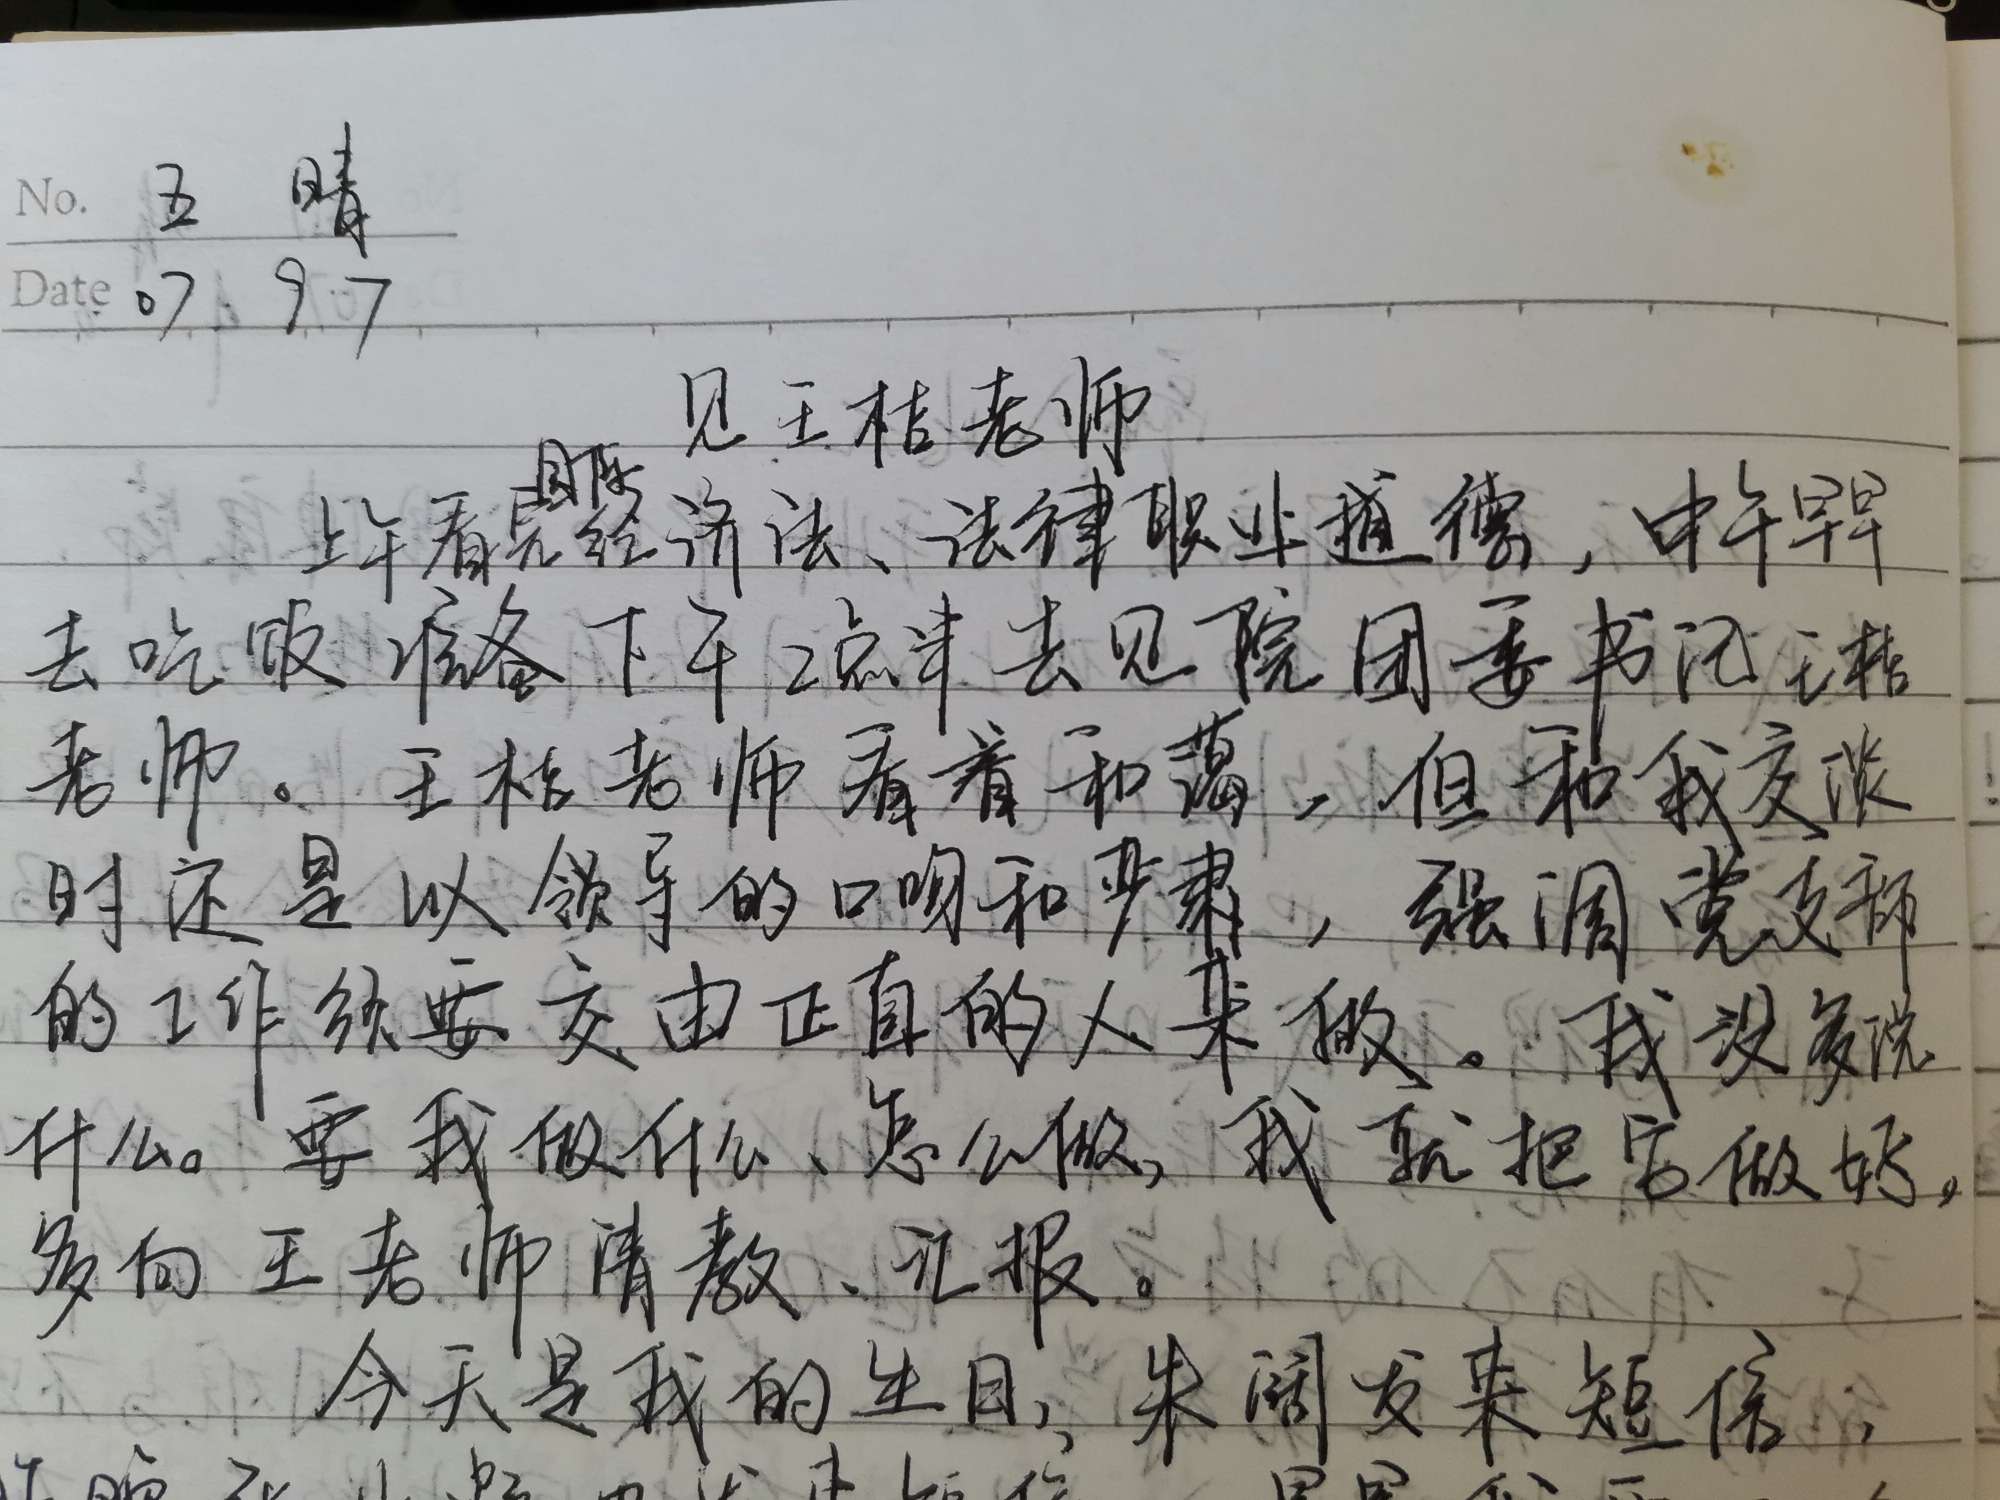 No. 五 晴
Date 07 9.7
见王桔老师
国际
上午看完经济法、法律职业道德，中午早早
去吃饭准备下午2点半去见院团委书记王桔
老师。王桔老师看着和蔼，但和我交谈
时还是以领导的口吻和严肃，强调党支部
的工作须要交由正直的人来做。我没多说
什么。要我做什么、怎么做，我就把它做好，
多向王老师请教、汇报。
今天是我的生日，朱阔发来短信，